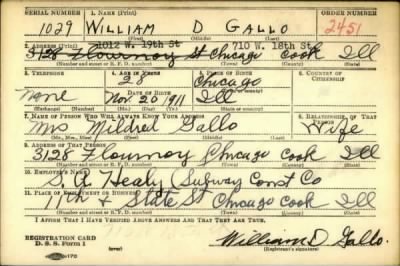 SERIAL NUMBER 1. NAME (Print) ORDER NUMBER
1029 WILLIAM D GALLO 2451
(First) (Middle) (Last)
2. ADDRESS (Print) 1012 W. 19th St 710 W. 18th St
3128 Flournoy St Chicago Cook Ill
(Number and street or R. F. D. number) (Town) (County) (State)
3. TELEPHONE 4. AGE IN YEARS 5. PLACE OF BIRTH 6. COUNTRY OF CITIZENSHIP
28 Chicago
none DATE OF BIRTH (Town or county)
Nov 20 1911 Ill
(Exchange) (Number) (Mo.) (Day) (Yr.) (State or country)
7. NAME OF PERSON WHO WILL ALWAYS KNOW YOUR ADDRESS 8. RELATIONSHIP OF THAT PERSON
Mrs Mildred Gallo Wife
(Mr., Mrs., Miss) (First) (Middle) (Last)
9. ADDRESS OF THAT PERSON
3128 Flournoy Chicago Cook Ill
(Number and street or R. F. D. number) (Town) (County) (State)
10. EMPLOYER'S NAME
Healy (Subway Const Co
11. PLACE OF EMPLOYMENT OR BUSINESS
11th & State St Chicago Cook Ill
(Number and street or R. F. D. number) (Town) (County) (State)
I AFFIRM THAT I HAVE VERIFIED ABOVE ANSWERS AND THAT THEY ARE TRUE.
REGISTRATION CARD
D. S. S. Form 1
William D. Gallo.
(Registrant's signature)